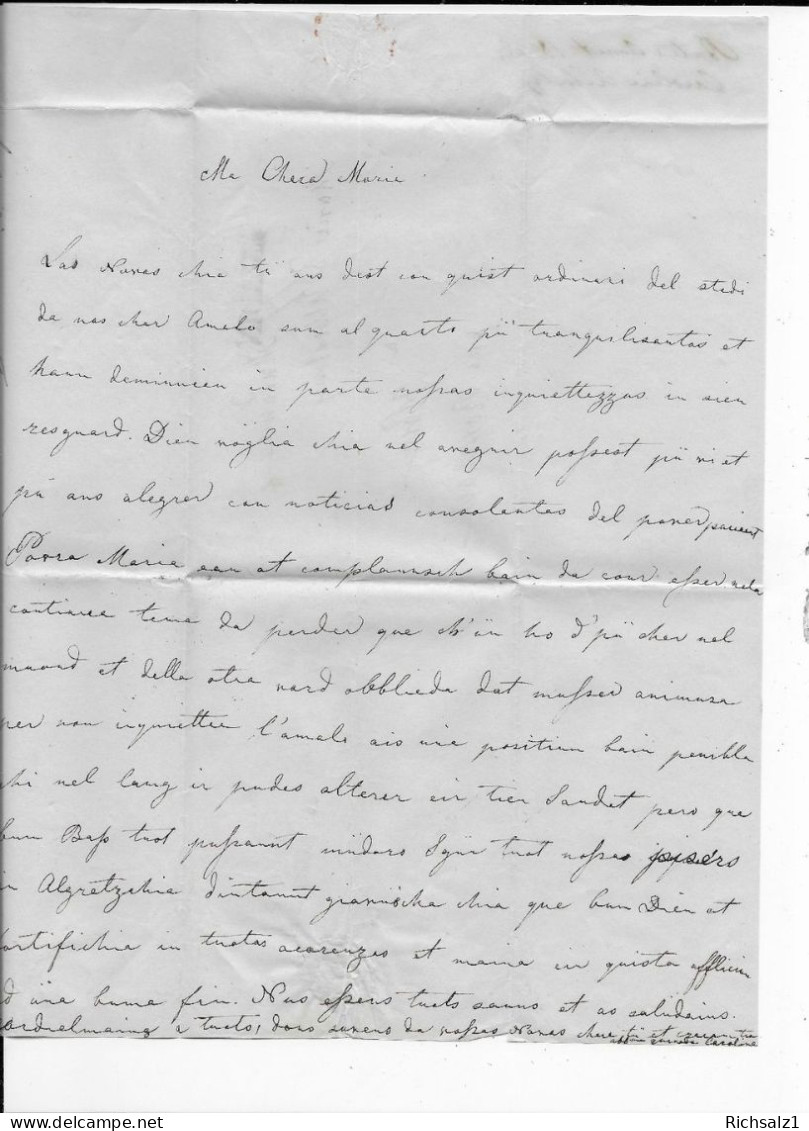 Ma Chera Marie
Las Novas chia tü ans dest con quist ordinari del stedi
da nos cher Amelo sun alquarto pü tranquilisantas et
haun deminuieu in parte nossas inquiettezzas in sieu
resguard. Dieu vöglia chia nel avegnir possest pü vi et
pü ans alegrer con noticias consolantas del pover pacient
Povra Maria eau at complaunsch bain da cour esser nela
continua tema da perder que ch'ün ho d'pü cher nel
muond et della otra vard obblieda dat musser animusa
per non inquietter l'amalo ais üna positiun bain penibla
chi nel lung ir pudes alterer eir tieu Sandet pero que
bun Bap tuot pussaunt müdaro Sgür tuot nossas
in Algretzchia dintaunt giavüscha chia que bun Dieu at
fortifichia in tuotas ocorenzas et maina in quista afflicziun
ad üna buna fin. Nus essers tuots sauns et as salüdains
cordielmaing a tuots, dors da nossas Novas chera tü et
Carolina
Richsalz1